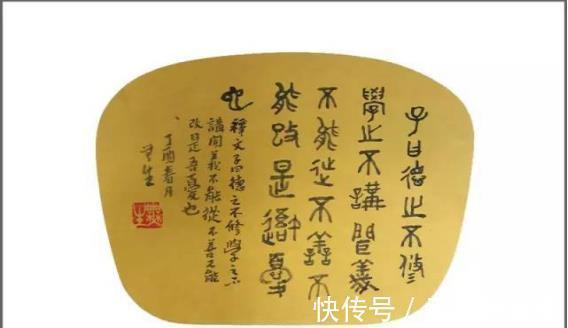 子曰德之不修
學之不講聞義
不能從不善不
能改是吾憂
也
釋文子曰德之不修學之不
講聞義不能從不善不能
改是吾憂也
丁酉春月
生
快传号/